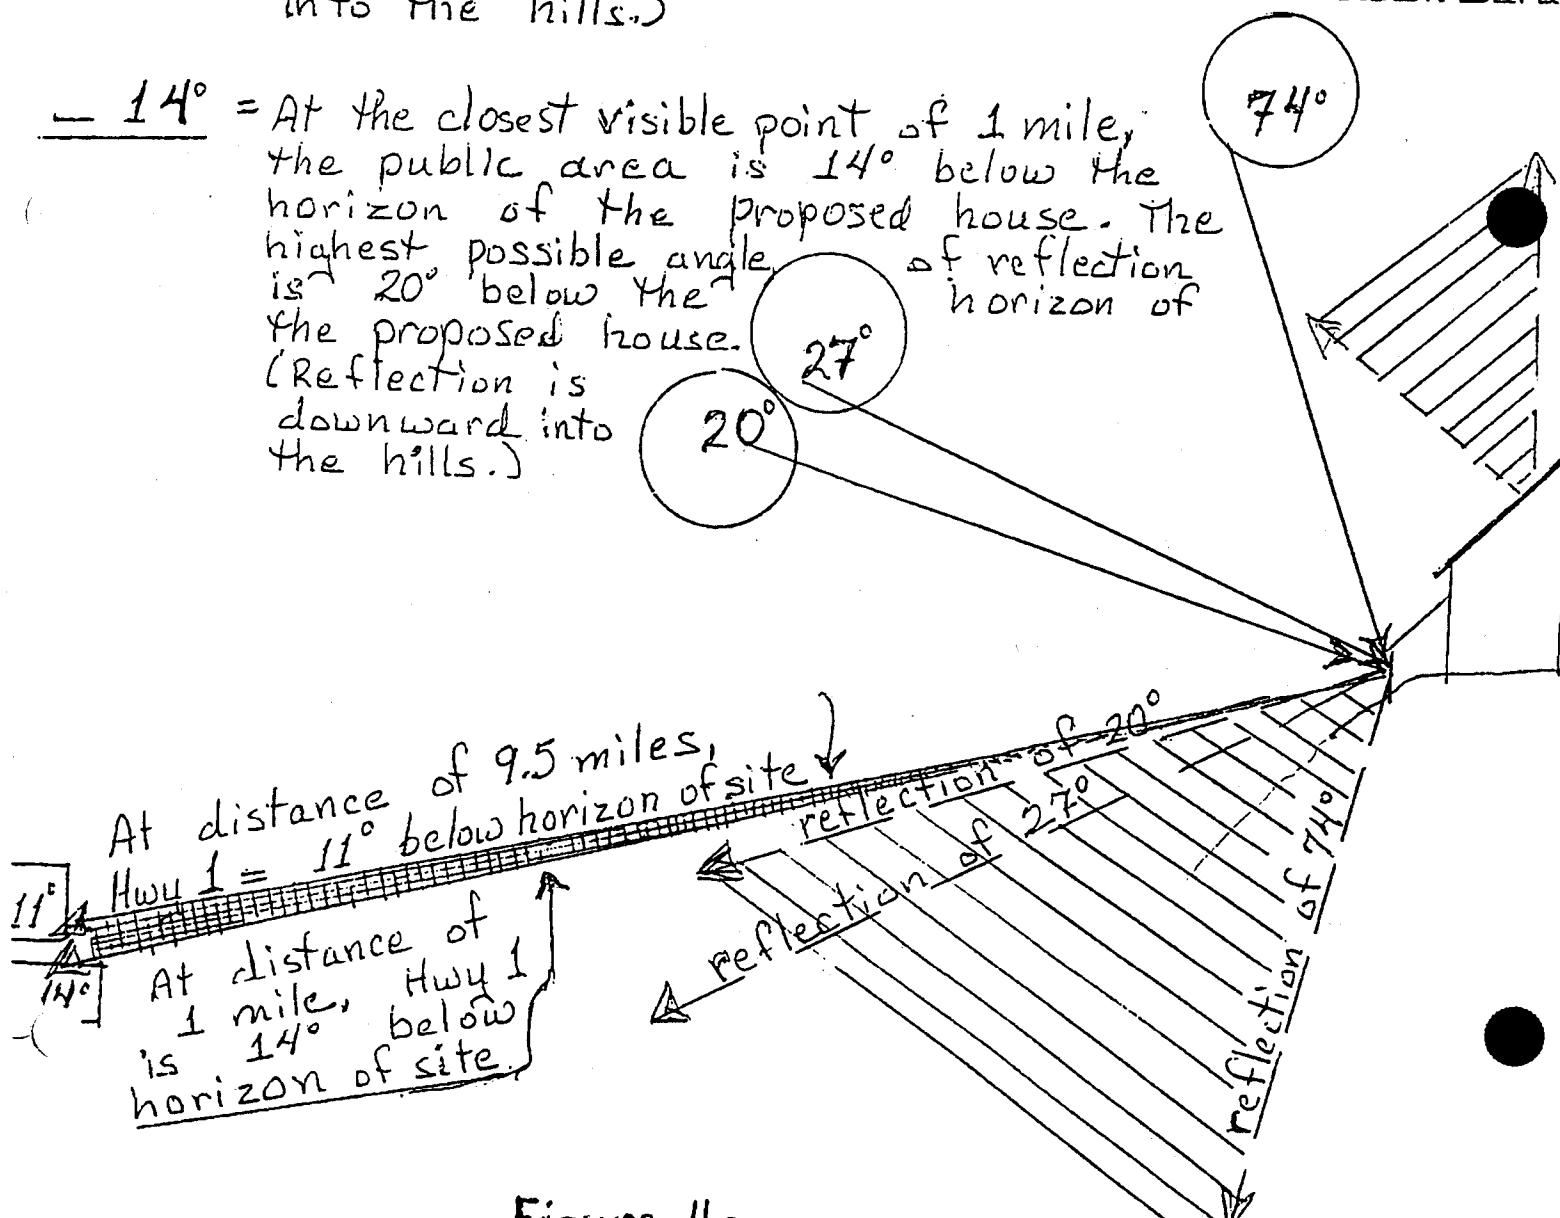 into the hills.)
74°
— 14° = At the closest visible point of 1 mile,
the public area is 14° below the
horizon of the proposed house. The
highest possible angle of reflection
is 20° below the horizon of
the proposed house.
(Reflection is
downward into
the hills.)
27°
20°
At distance of 9.5 miles,
Hwy 1 = 11° below horizon of site
11°
14°
At distance of
1 mile, Hwy 1
is 14° below
horizon of site.
reflection of 20°
reflection of 27°
reflection of 74°